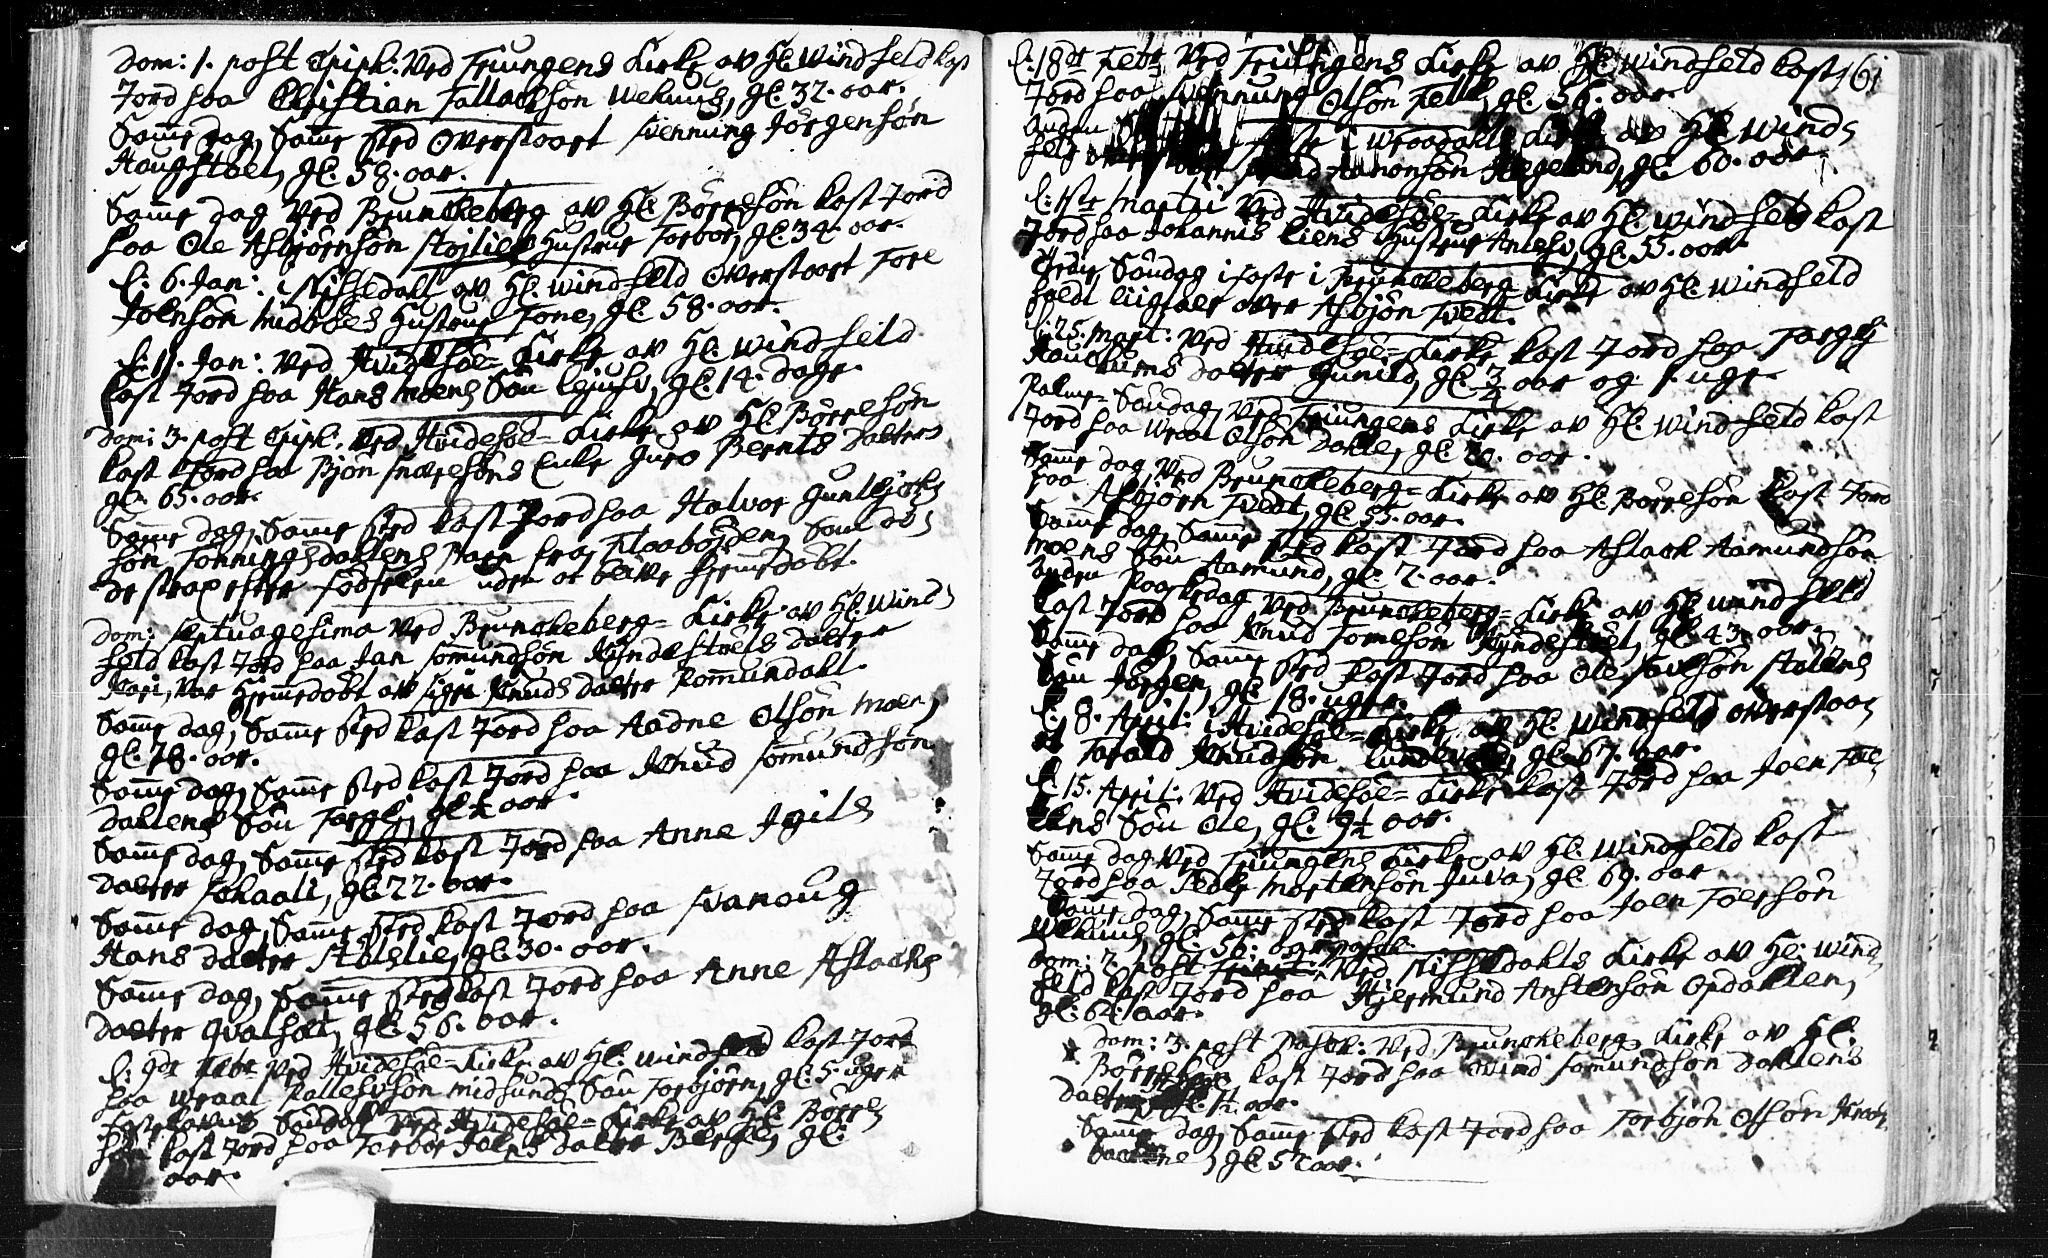 Dom: 1. post Epiph: Ved Triungens Kirke av Hl. Windfeld kast
Jord paa Christian Tallachsøn Wehuus, gl. 32. aar.
Samme dag, Samme sted Overstaaet Svennung Jørgensøn
Haugstoel, gl. 58. aar.
Samme dag Ved Brunckeberg av Hl. Børresøn kast Jord
paa Ole Asbjørnsøn Støjlies Hustrue Torbor, gl. 34. aar.
d. 6. Jan: i Nissedall av Hl. Windfeld Overstaaet Tore
Joensøn Midbøes Hustrue Tone, gl. 58. aar.
d. 11. Jan: Ved Hvidesøe-Kirke av Hl. Windfeld
kast Jord paa Hans Moens Søn Lejulv, gl. 14. dage.
Dom: 3. post Epiph. Ved Hvidesøe-Kirke av Hl. Børresøn
kast Jord paa Bjøn Snaresøns Encke Guro Bernts Daatter
gl. 65. aar.
Samme dag, Samme sted kast Jord paa Halvor Gunlejks
søn Tonningsdallens Barn fra Flaabøjden, Som dø-
de strax efter Fødselen uden at blive hjemmedøbt.
Dom: Septuagesima Ved Brunckeberg-Kirke av Hl. Wind-
feld kast Jord paa Jan Somundsøn Kyndestoels Daatter
Kari, Var Hjemmedøbt av Sigri Knuds Daatter Rommundahl.
Samme dag, Samme sted kast Jord paa Aadne Olsøn Moen,
gl. 78. aar.
Samme dag, Samme sted kast Jord paa Knud Somundsøn
Dallens Søn Torgie, gl. ½ aar.
Samme dag, Samme sted kast Jord paa Anne Igils
Daatter Schaali, gl. 22. aar.
Samme dag, Samme sted kast Jord paa Svanoug
Hans Daatter Støjlie, gl. 30. aar.
Samme dag, Samme sted kast Jord paa Anne Aslachs
Daatter Qvalsøt, gl. 56. aar.
d. 9de Febr. Ved Hvidesøe-Kirke av Hl. Windfeld kast Jord
paa Wraal Midsunds Søn Torbjørn, gl. 5. uger
Fastelavns Søndag Ved Hvidesøe-Kirke av Hl. Børre-
søn kast Jord paa Torbor Daatter gl:
aar.
d. 18de Febr. Ved Triungens Kirke av Hl. Windfeld kast 161
Jord paa Svennung Olsøn Felle, gl. 56. aar.
Anden faste i Wraadahls Kirke av Hl. Wind-
feld Aamonsøn Hegland, gl. 60. aar.
d. 1ste Martii Ved Hvidesøe-Kirke av Hl. Windfeld kast
Jord paa Johannis Liens Hustrue gl. 55. aar.
Tredie Søndag i faste i Brunckeberg Kirke av Hl. Windfeld
holdt liigtale over Asbjøn Tvedt.
d. 25. Mart: Ved Hvidesøe-Kirke kast Jord paa Torgie
Daatter Gunild, gl. ¾ aar og 1. uge.
Palme-Søndag, Ved Triungens Kirke av Hl. Windfeld kast
Jord paa Wraal Olsøn Dahle, gl. 70. aar.
Samme dag, Ved Brunckeberg-Kirke av Hl. Børresøn kast Jord
paa Asbjørn Tvedt, gl. 55. aar.
Samme dag, Samme sted kast Jord paa Aslach Aamundsøn
Moens Søn Aamund, gl. 7. aar.
Anden Paaskedag Ved Brunckeberg-Kirke av Hl. Windfeld
kast Jord paa Knud Tomesøn Kyndestoel, gl. 43. aar.
Samme dag, Samme sted kast Jord paa Ole Stalens
Søn Jørgen, gl. 18. uger.
d. 8. April: i Hvidesøe-Kirke av Hl. Windfeld overstaa-
et Torald Knudsøn Lundevald, gl. 67. aar.
d. 15. April: Ved Hvidesøe-Kirke kast Jord paa Joen
Søn Ole, gl. 9½ aar.
Samme dag Ved Triungens Kirke av Hl. Windfeld kast
Jord paa Peder Mortensøn Juva, gl. 69. aar
Samme dag, Samme sted kast Jord paa Joen Toersøn
Wehuus, gl. 56. aar
Dom: 2. post Pasch: Ved Nissedahls Kirke av Hl: Wind-
feld kast Jord paa Hjermund Anstensøn Opdallen,
gl. 62. aar.
Dom: 3. post Pasch: Ved Brunckeberg Kirke av Hl.
Børresøn kast Jord paa Somundsøn Dallens
Daatter gl. ½. aar.
Samme dag, Samme sted kast Jord paa Torbjøn Olsøn
gl. 57 aar.